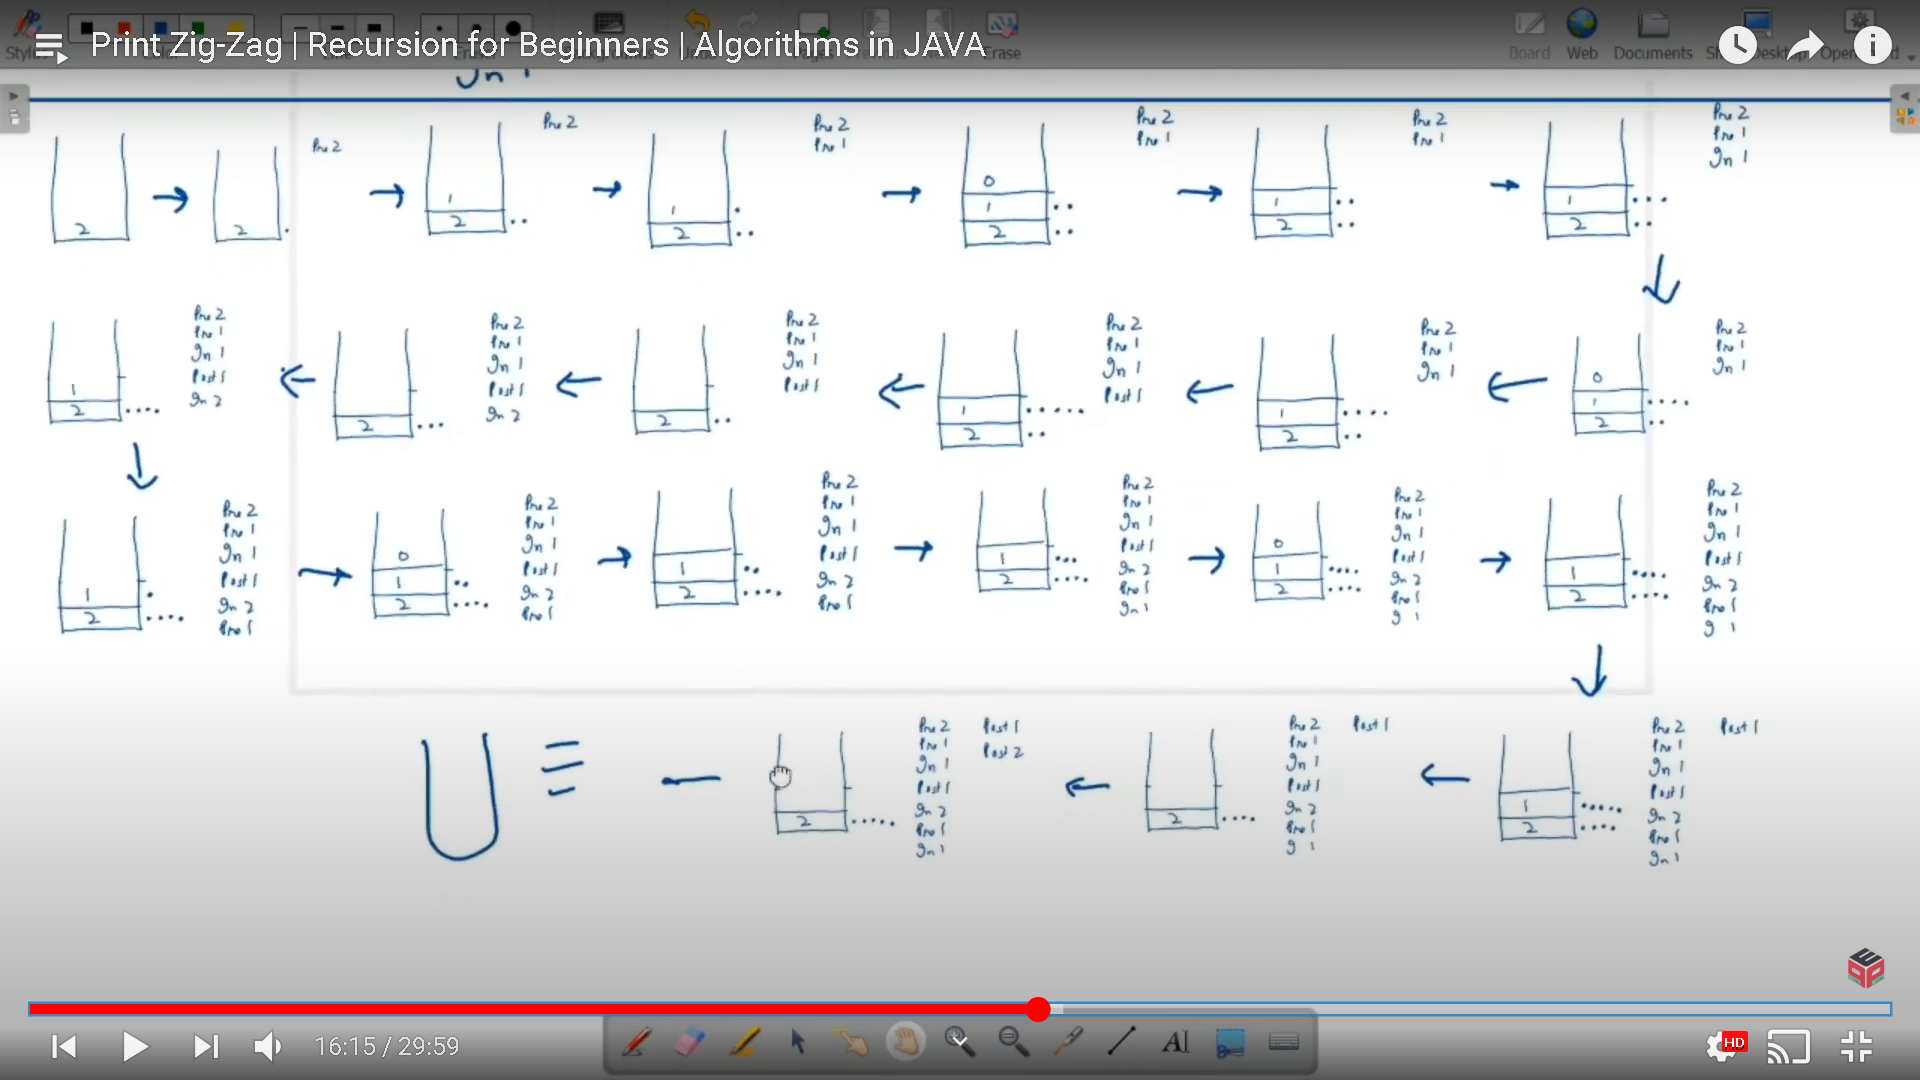 Print Zig-Zag | Recursion for Beginners | Algorithms in JAVA
Board Web Documents
Erase
In 1
2
2
Pre 2
1
2
Pre 2
1
2
Pre 2
Pre 1
0
1
2
Pre 2
Pre 1
1
2
Pre 2
Pre 1
1
2
Pre 2
Pre 1
In 1
1
2
Pre 2
Pre 1
In 1
Post 1
In 2
2
Pre 2
Pre 1
In 1
Post 1
In 2
2
Pre 2
Pre 1
In 1
Post 1
1
2
Pre 2
Pre 1
In 1
Post 1
1
2
Pre 2
Pre 1
In 1
0
1
2
Pre 2
Pre 1
In 1
1
2
Pre 2
Pre 1
In 1
Post 1
In 2
Pre 1
0
1
2
Pre 2
Pre 1
In 1
Post 1
In 2
Pre 1
1
2
Pre 2
Pre 1
In 1
Post 1
In 2
Pre 1
1
2
Pre 2
Pre 1
In 1
Post 1
In 2
Pre 1
In 1
0
1
2
Pre 2
Pre 1
In 1
Post 1
In 2
Pre 1
g 1
1
2
Pre 2
Pre 1
In 1
Post 1
In 2
Pre 1
g 1
2
Pre 2 Post 1
Pre 1 Post 2
In 1
Post 1
In 2
Pre 1
In 1
2
Pre 2 Post 1
Pre 1
In 1
Post 1
In 2
Pre 1
g 1
1
2
Pre 2 Post 1
Pre 1
In 1
Post 1
In 2
Pre 1
In 1
16:15 / 29:59
AI
HD